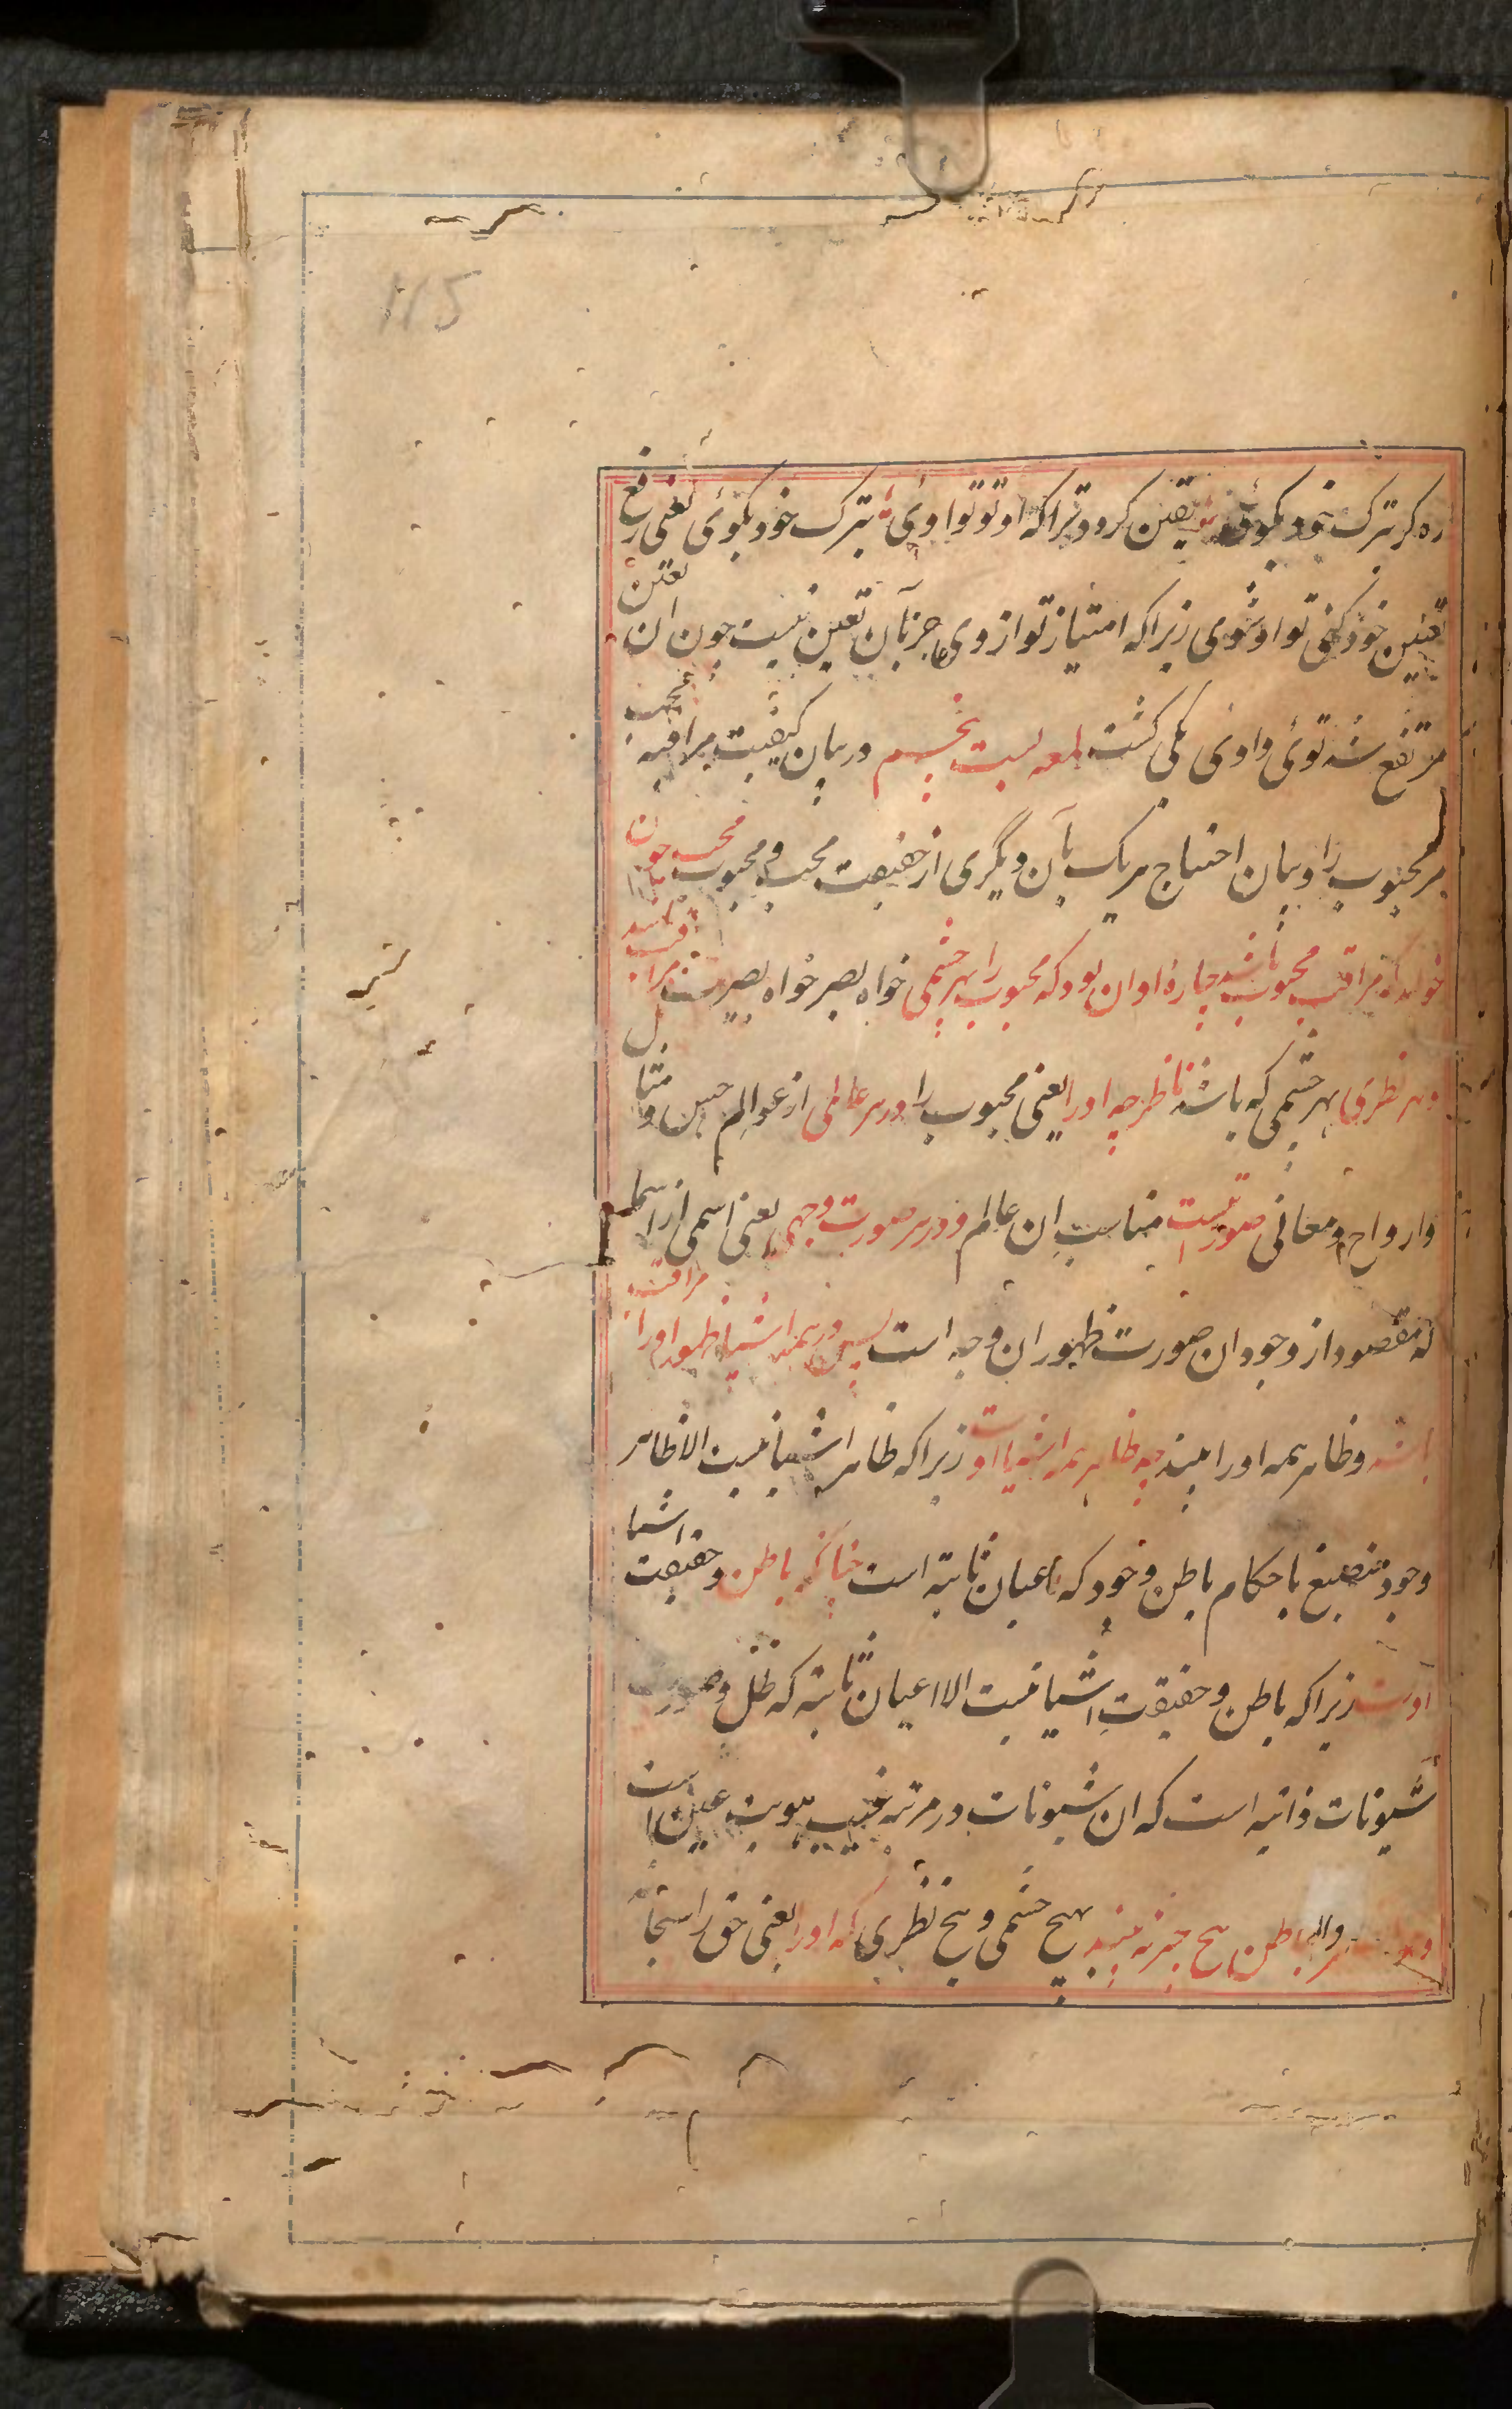 115
ره گر ترک خود بگوئی یقین گردد ترا که او تو تو اوئی بترک خود بگوئی یعنی رفع
تعین خود کنی تو او شوی زیرا که امتیاز تو از وی جز بآن تعین نیست چون ان تعین
مرتفع شد توئی و اوئی یکی گشت لمعه بیست پنجم در بیان کیفیت مراقبه محب
مر محبوب را و بیان احتیاج هر یک بآن دیگری از حقیقت محب و محبوب محب چون
خواهد که مراقب محبوب باشد چارهٔ او ان بود که محبوب را بهر چشمی خواه بصر خواه بصیرت مراقب باشد
و بهر نظری بهر چشمی که باشد ناظر چه او را یعنی محبوب را در هر عالمی از عوالم حس و مثال
و ارواح و معانی صورتیست مناسب ان عالم و در هر صورت وجهی یعنی اسمی از اسما
که مقصود از وجود ان صورت ظهور ان وجه است پس در همه اشیا ظهور او را مراقب
باشد و ظاهر همه او را بیند چه ظاهر همه اشیا اوست زیرا که ظاهر اشیا نیست الا ظاهر
وجود منصبغ باحکام باطن وجود که اعیان ثابته است چنانکه باطن و حقیقت اشیا
اوست زیرا که باطن و حقیقت اشیا نیست الا اعیان ثابته که ظل و صورت
شیونات ذاتیه است که ان شیونات در مرتبه غیب هویت عین است
والباطن هیچ چیز نه بیند بهیچ چشمی و هیچ نظری که او را یعنی حق را سبحانه